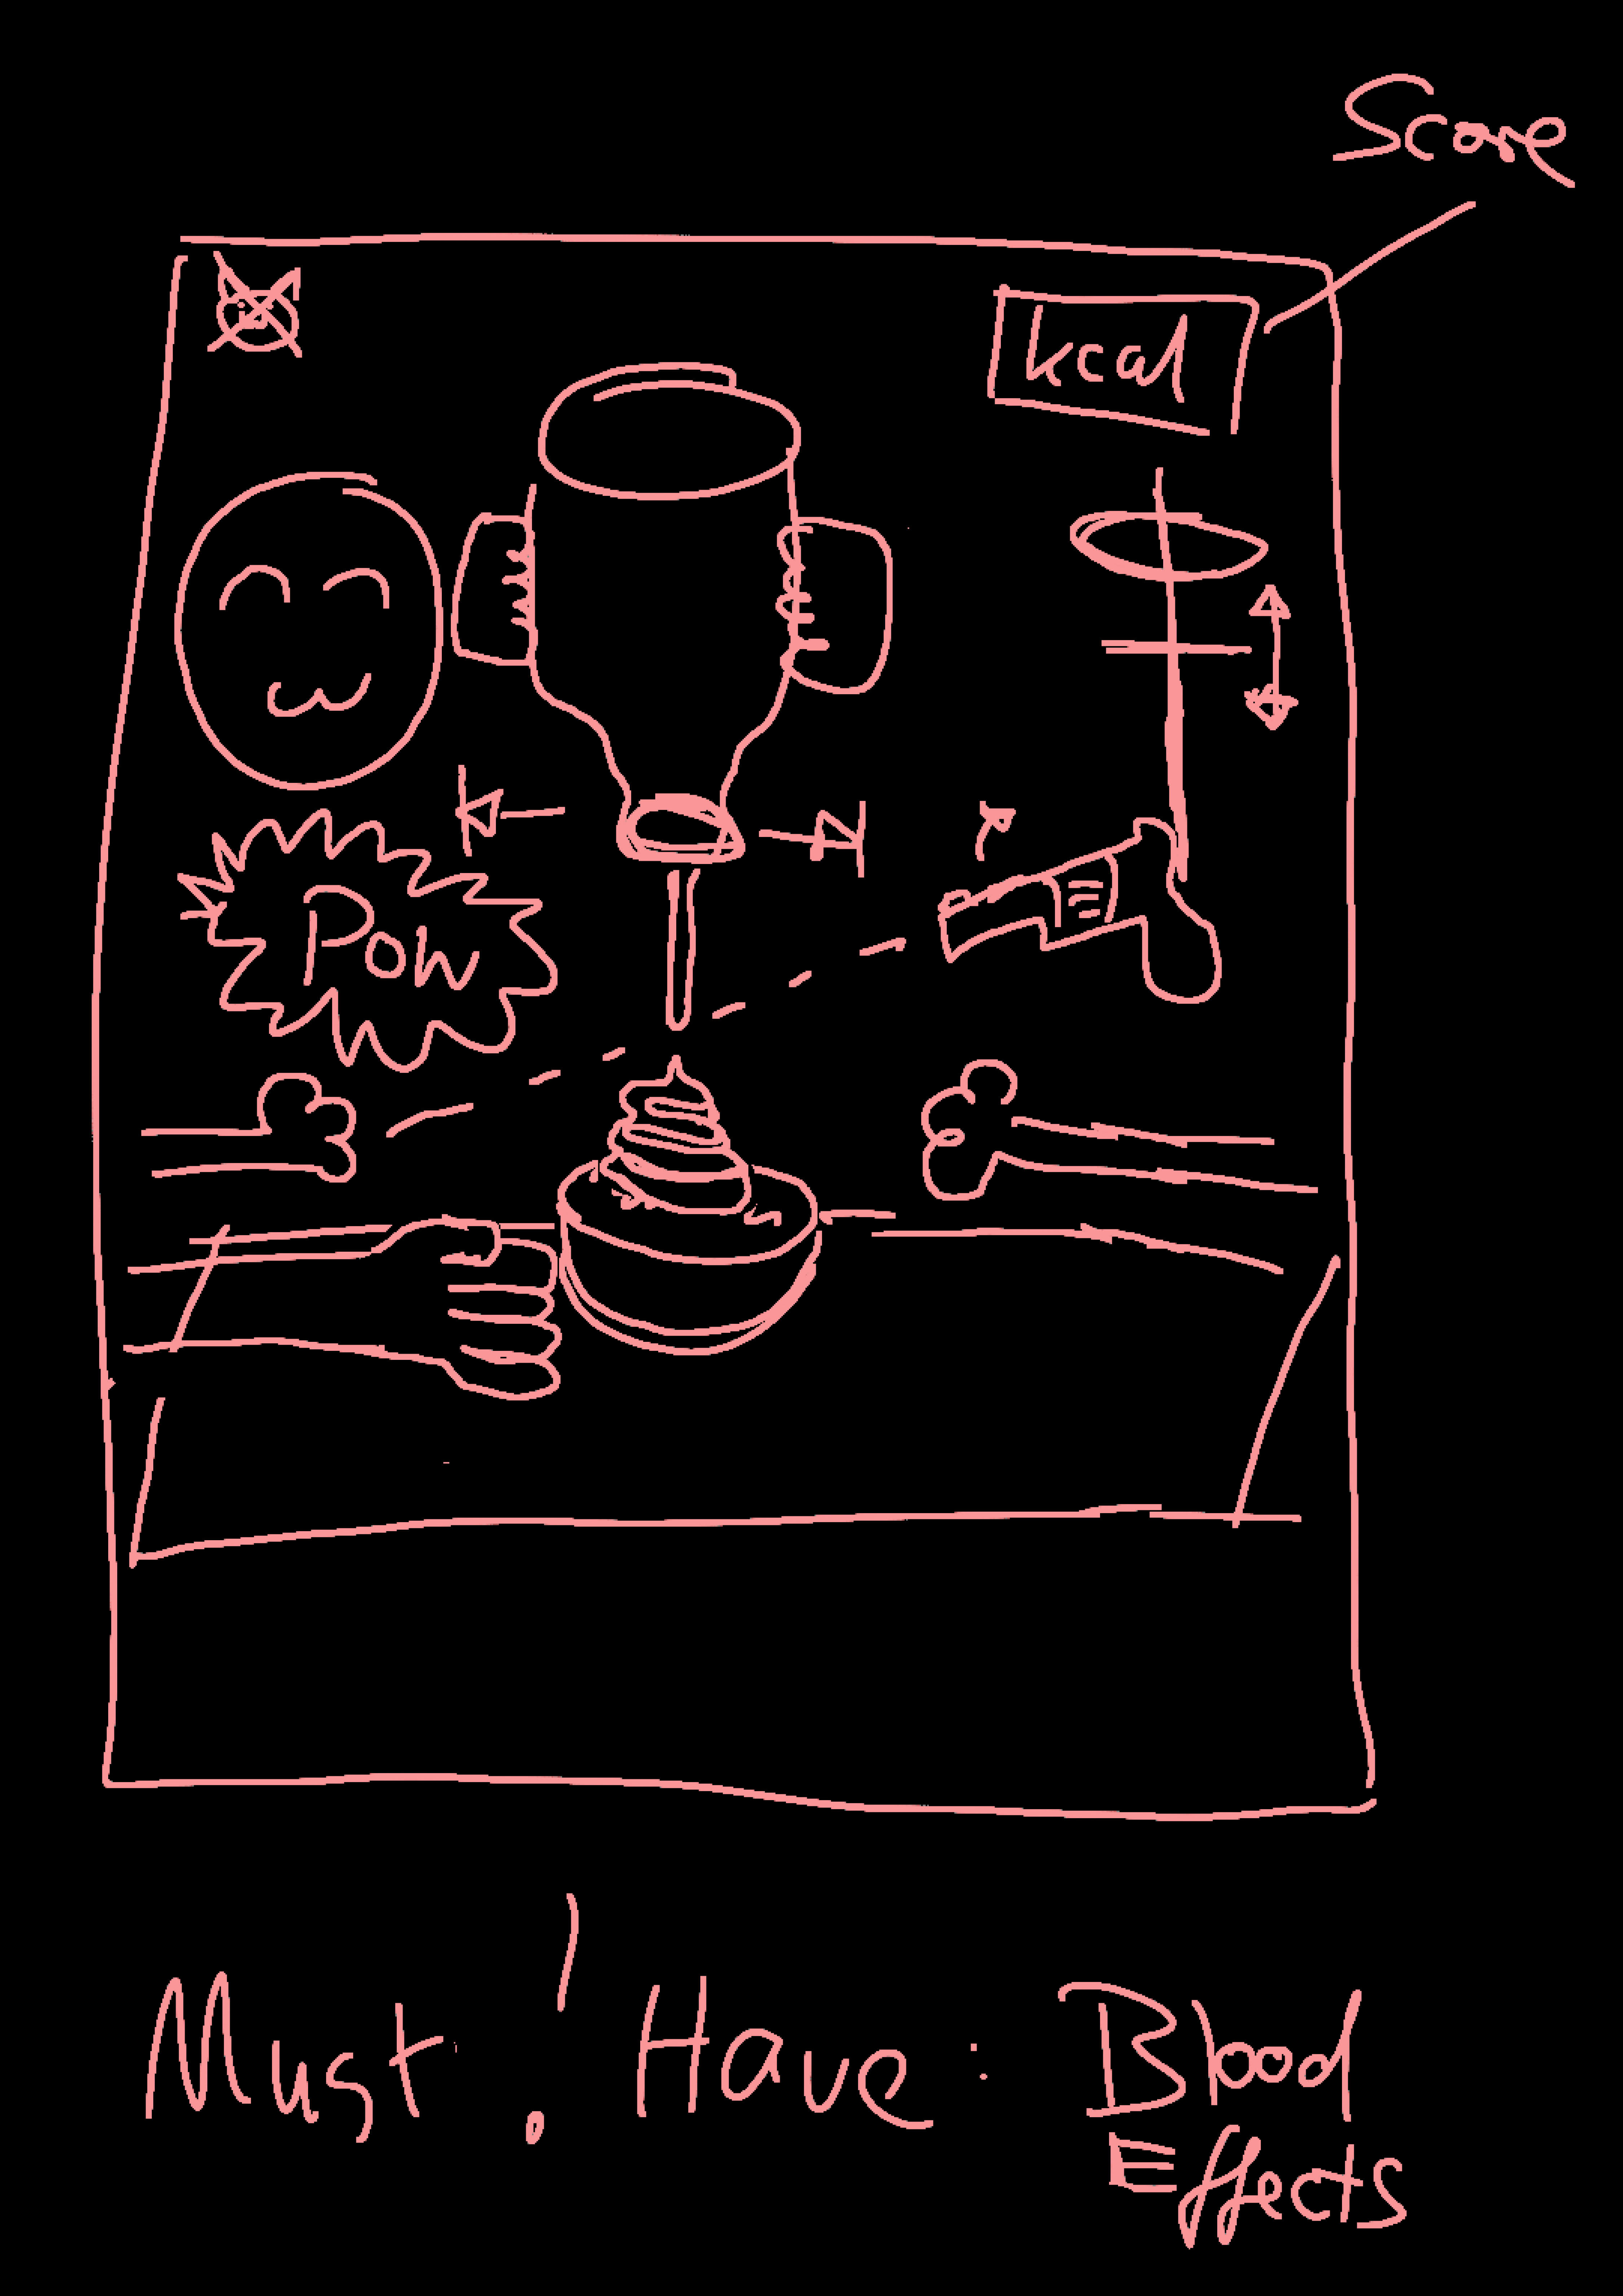 Score
kcal
Pow
Must ! Have : Blood
Effects